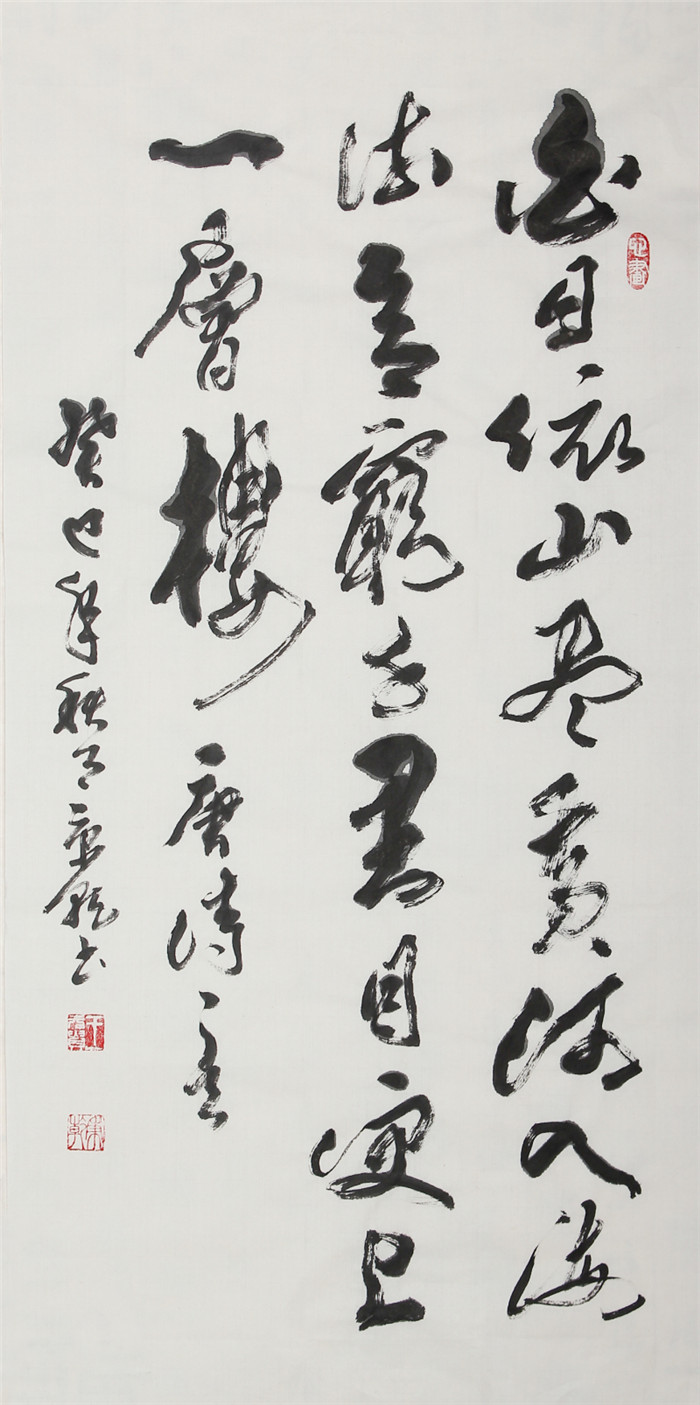 白日依山尽黄河入海
流窮千里目更上
一層樓 唐詩一首
癸巳年秋月书